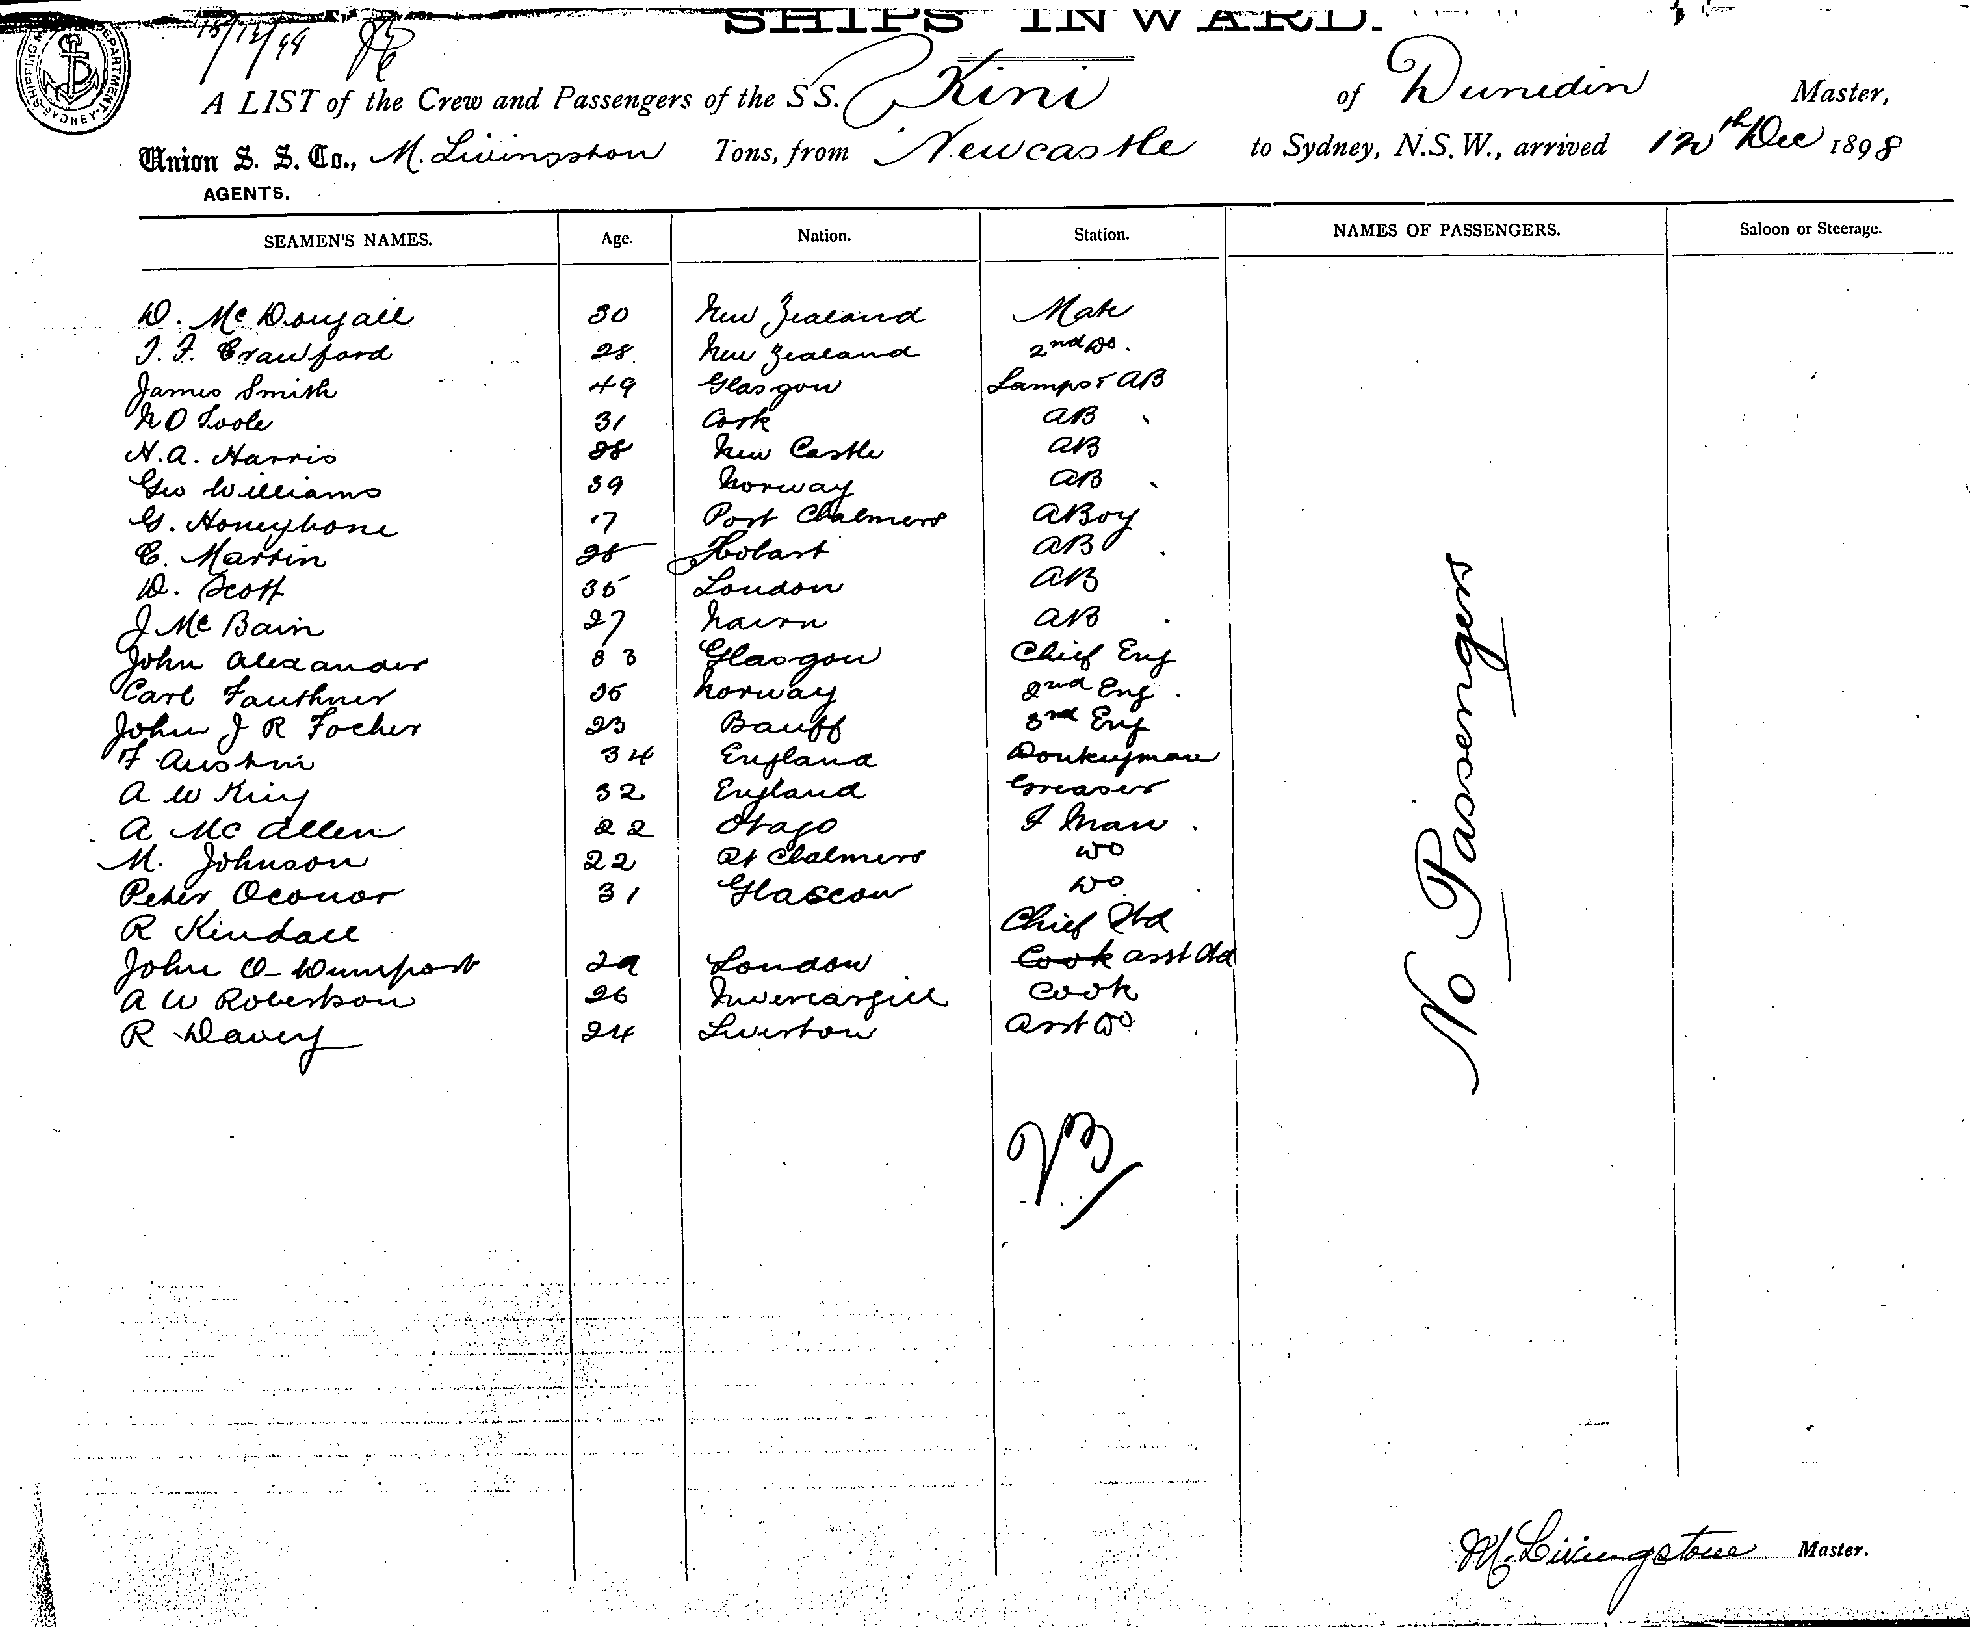 SHIPS INWARD.
15/12/98
A LIST of the Crew and Passengers of the SS. Kini of Dunedin Master,
Union S. S. Co., M. Livingston Tons, from Newcastle to Sydney, N.S.W., arrived 12th Dec 1898
AGENTS.
SEAMEN'S NAMES. Age. Nation. Station. NAMES OF PASSENGERS. Saloon or Steerage.
D. McDougall 30 New Zealand Mate
T. F. Crawford 28 New Zealand 2nd Do.
James Smith 49 Glasgow Lamps & AB
O Toole 31 Cork AB
H. A. Harris 28 New Castle AB
Geo Williams 39 Norway AB
G. Honeybone 17 Port Chalmers A Boy
C. Martin 28 Hobart AB
D. Scott 35 London AB
J McBain 27 Nairn AB
John Alexander 33 Glasgow Chief Eng
Carl Fauthner 35 Norway 2nd Eng
John J R Focher 23 Banff 3rd Eng
F Austin 34 England Donkeyman
A W King 32 England Greaser
A McAllen 22 Otago F Man
M. Johnson 22 Pt Chalmers Do
Peter Oconor 31 Glascow Do
R Kindall Chief Std
John O Dumpost 29 London Cook asst Std
A W Robertson 26 Invercargill Cook
R Davey 24 Asst Do
No Passengers
M. Livingstone Master.